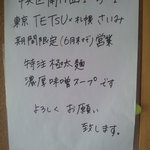 東京 TETSU×札幌 さいみ
期間限定(6月まで)営業
特注極太麺
濃厚味噌スープです
よろしくお願い
致します。